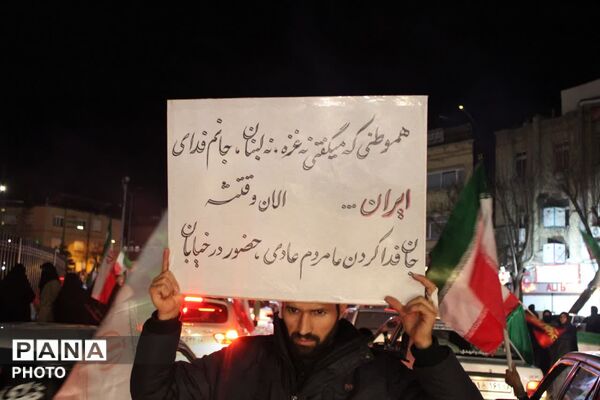 هموطنی که میگفتی نه غزه، نه لبنان، جانم فدای
ایران ... الان وقتشه
جان فدا کردن ما مردم عادی، حضور در خیابان
PANA
PHOTO